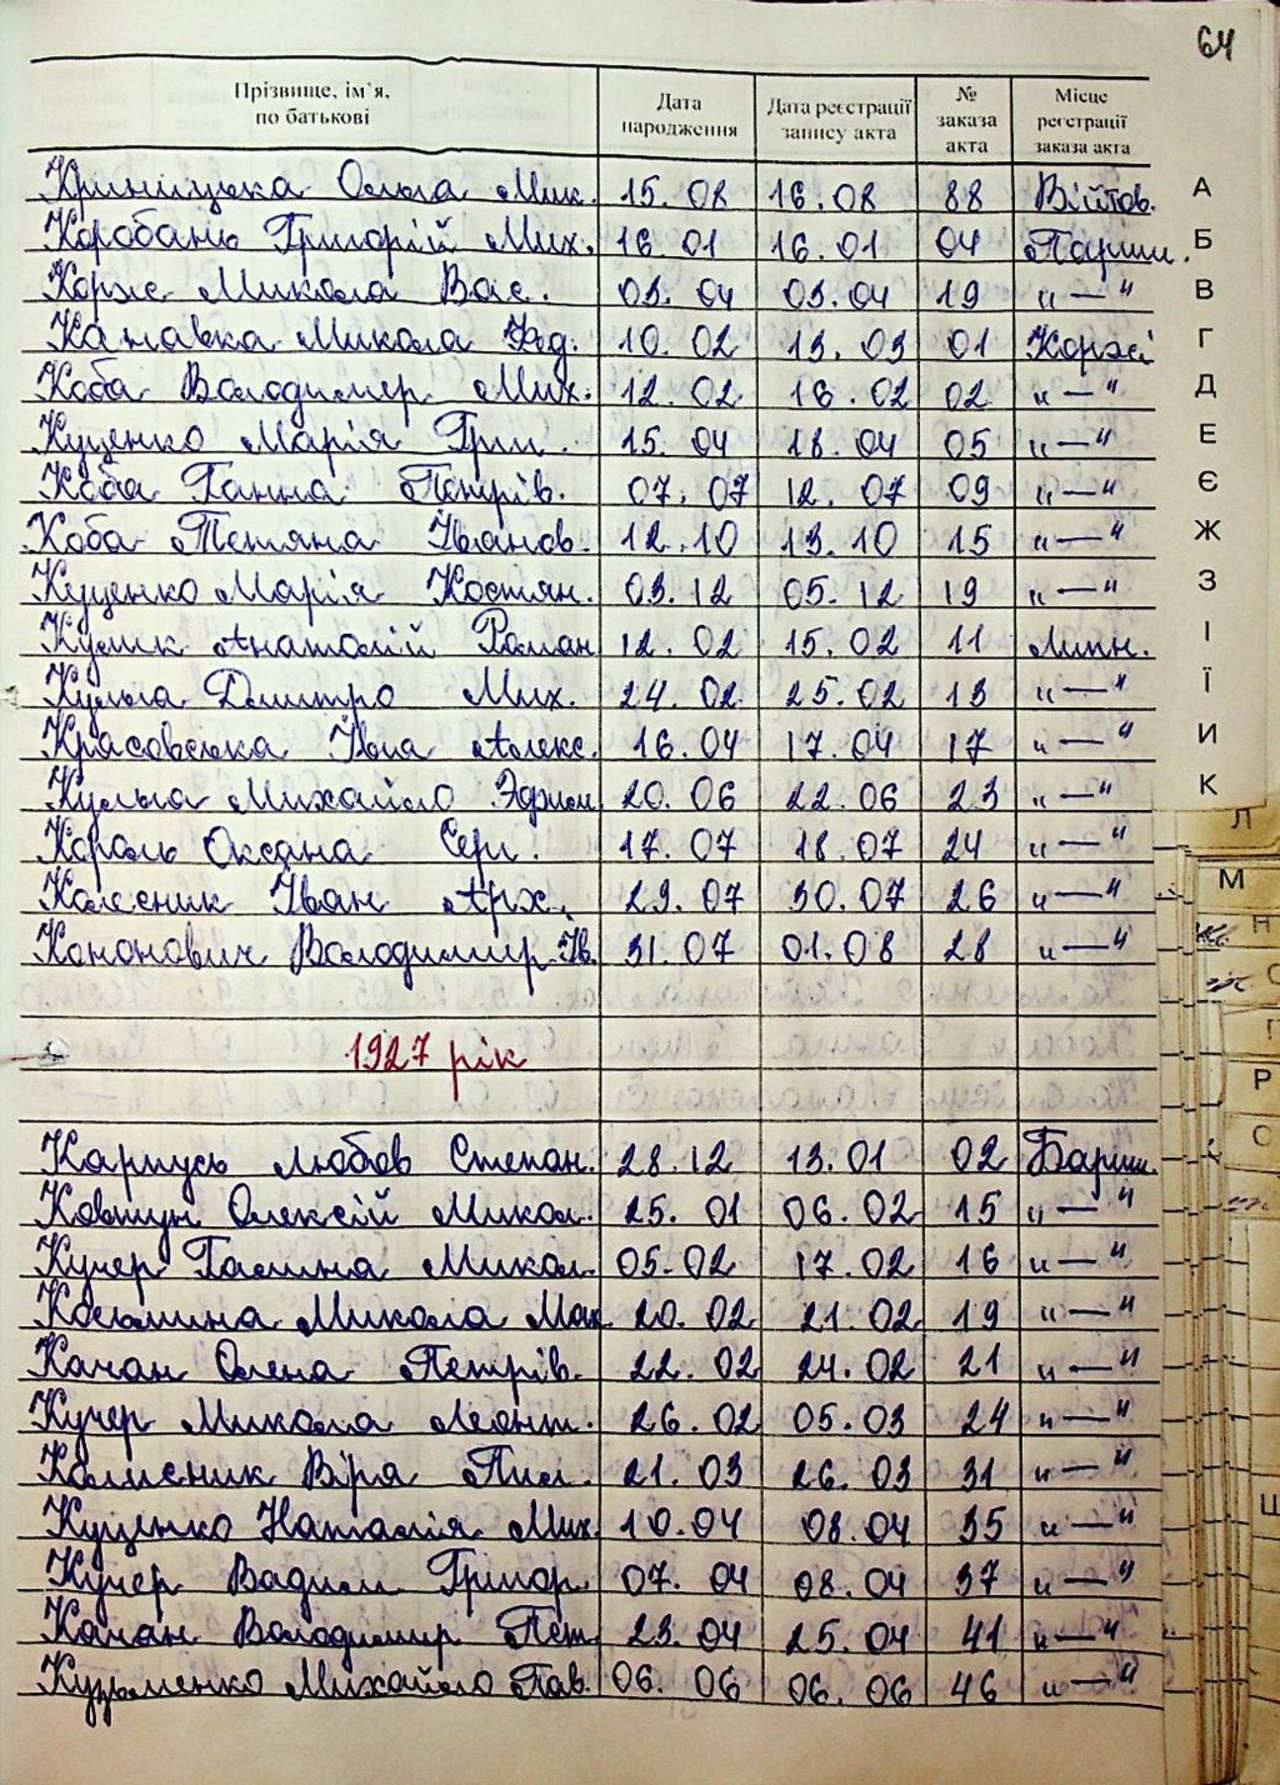 64
Прізвище, ім'я, по батькові Дата народження Дата реєстрації запису акта № заказа акта Місце реєстрації заказа акта
Криницька Ольга Мик. 15.08 16.08 88 Війтов. А
Коробань Григорій Мих. 16 01 16.01 04 Парши. Б
Корже Микола Вас. 03.04 03.04 19 "—" В
Канавка Микола Фед. 10.02 13.03 01 Коржі Г
Коба Володимер Мих. 12.02 16.02 02 "—" Д
Куценко Марія Гри. 15.04 18.04 05 "—" Е
Коба Ганна Петрів. 07.07 12.07 09 "—" Є
Коба Тетяна Іванов. 12.10 13.10 15 "—" Ж
Куценко Марія Костян. 03.12 05.12 19 "—" З
Кулик Анатолій Роман 12.02 15.02 11 Липн. І
Кульга Дмитро Мих. 24.02 25.02 13 "—" Ї
Красовська Алекс. 16.04 17.04 17 "—" И
Кульга Михайло 20.06 22.06 23 "—" К
Король Оксана Серг. 17.07 18.07 24 "—" Л
Колесник Іван Арх. 29.07 30.07 26 "—" М
Кононович Володимир Ів. 31.07 01.08 28 "—" Н
1927 рік
Р
Карпусь Любов Степан. 28.12 13.01 02 Барши. С
Ковтун Олексій Микол. 25.01 06.02 15 "—"
Кучер Галина Микол. 05.02 17.02 16 "—"
Микола Мак 20.02 21.02 19 "—"
Качан Олена Петрів. 22.02 24.02 21 "—"
Кучер Микола Леонт. 26.02 05.03 24 "—"
Колисник Віра Пил. 21.03 26.03 31 "—"
Куценко Наталія Мих. 10.04 08.04 35 "—" Ш
Кучер Вадим Григор. 07.04 08.04 37 "—"
Качан Володимир Пет. 23.04 25.04 41 "—"
Кузьменко Михайло Пав. 06.06 06.06 46 "—"